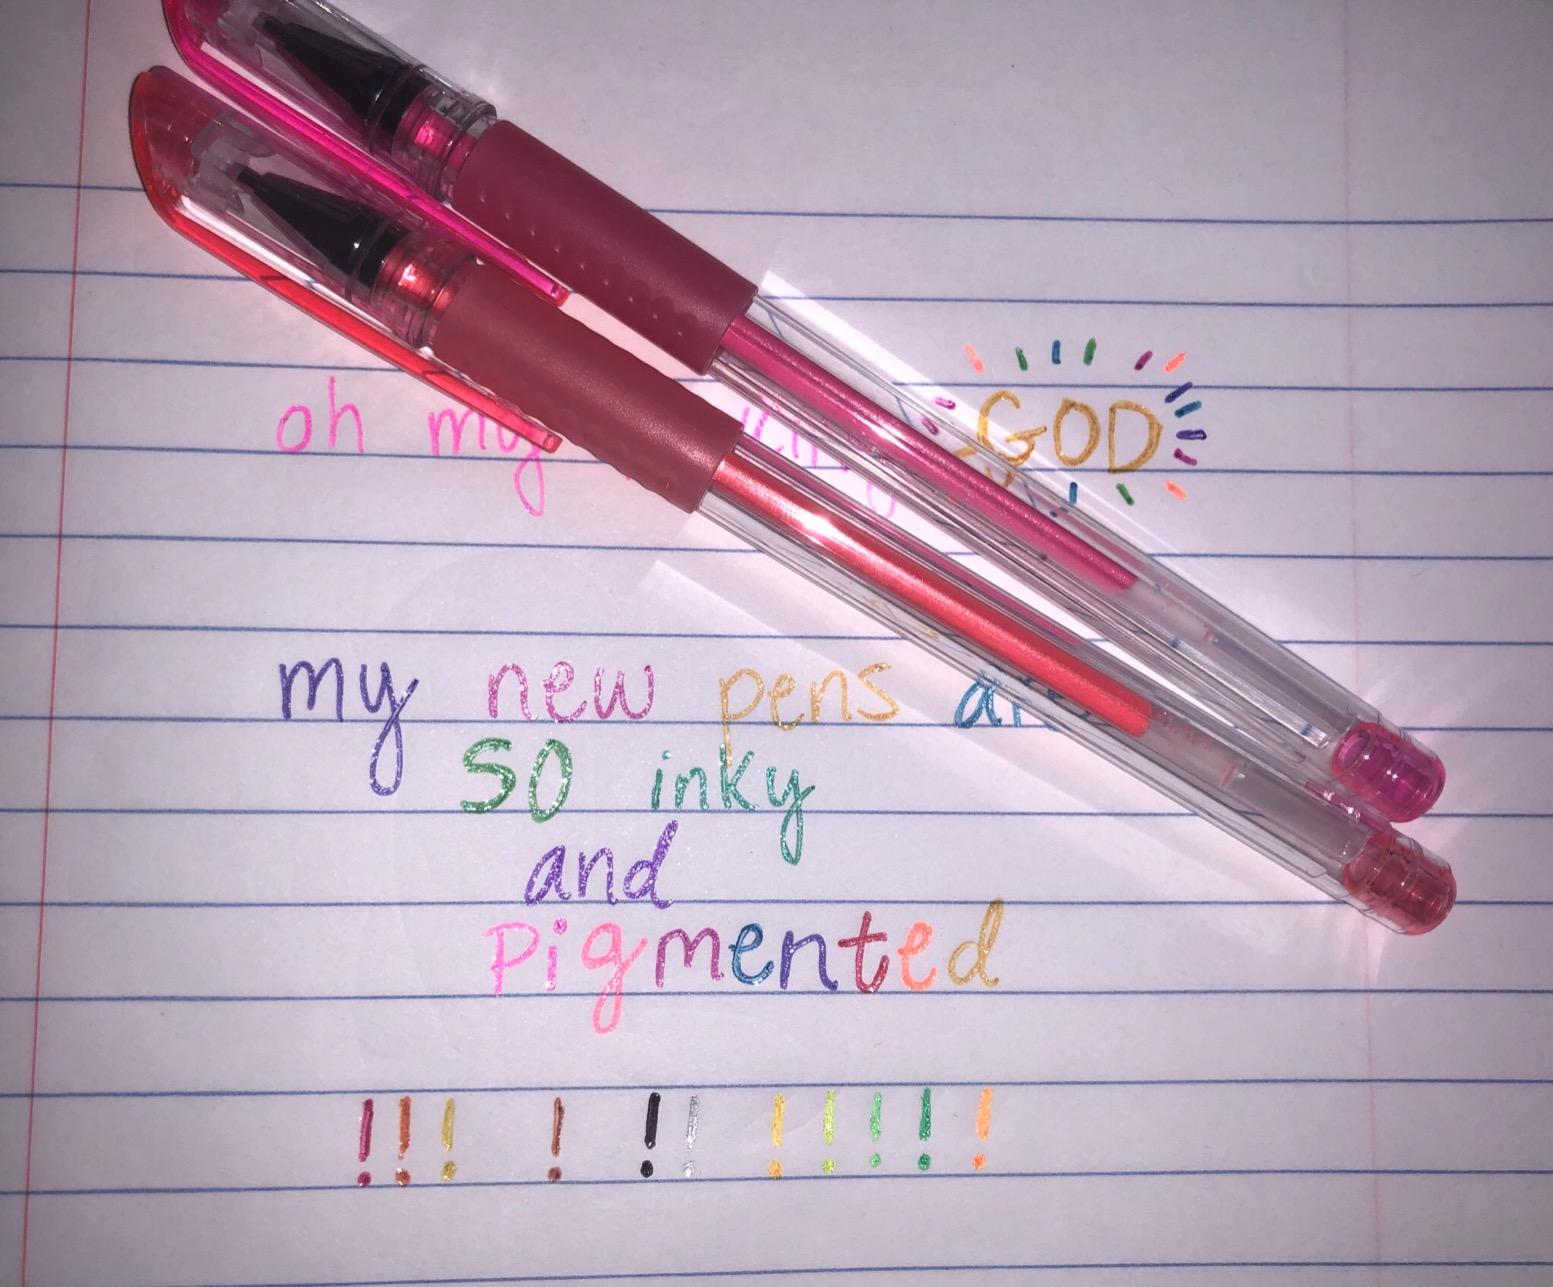 oh my GOD
my new pens are
so inky
and
Pigmented
!!! ! !! !!!!!